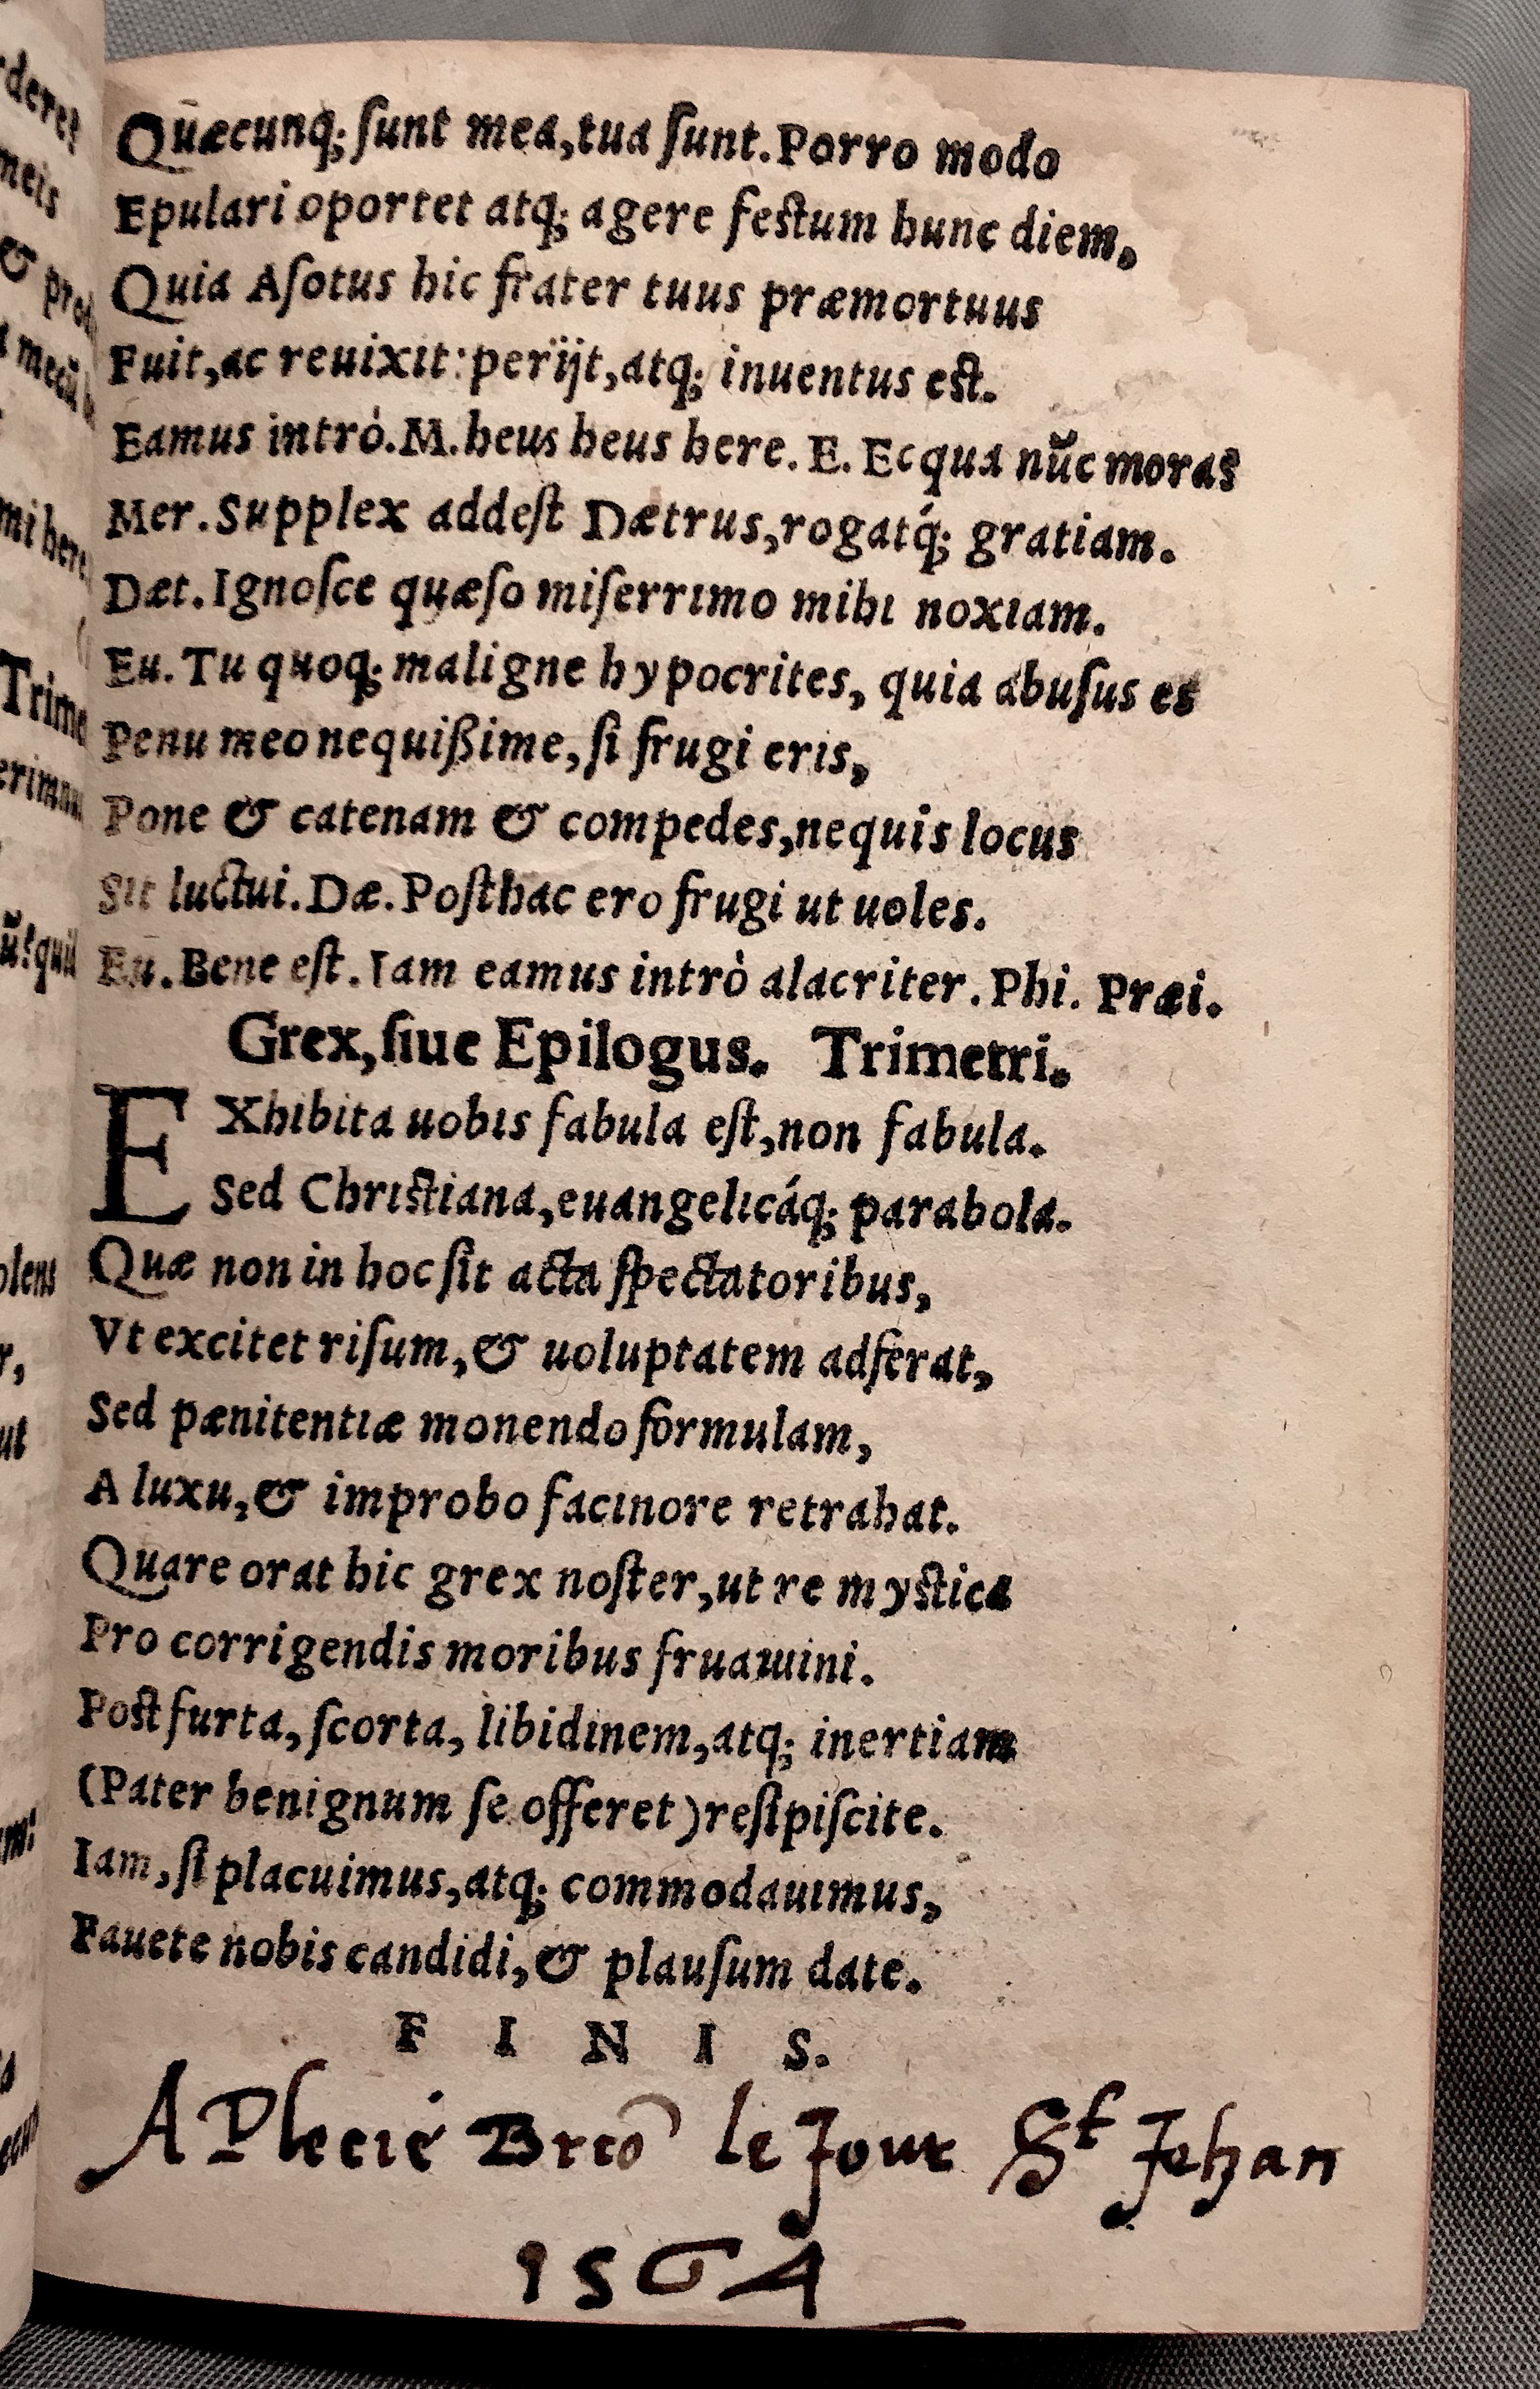 Quæcunq; ſunt mea, tua ſunt. Porro modo
Epulari oportet atq; agere feſtum hunc diem,
Quia Aſotus hic frater tuus præmortuus
Fuit, ac reuixit: perijt, atq; inuentus eſt.
Eamus intrò. M. heus heus here. E. Ecqua nũc moras
Mer. Supplex addeſt Dætrus, rogatq́; gratiam.
Dæt. Ignoſce quæſo miſerrimo mihi noxiam.
Eu. Tu quoq; maligne hypocrites, quia abuſus es
Penu meo nequißime, ſi frugi eris,
Pone & catenam & compedes, nequis locus
Sit luctui. Dæ. Poſthac ero frugi ut uoles.
Eu. Bene eſt. Iam eamus intrò alacriter. Phi. Præi.
Grex, ſiue Epilogus. Trimetri.
EXhibita uobis fabula eſt, non fabula.
Sed Chriſtiana, euangelicáq; parabola.
Quæ non in hoc ſit acta ſpectatoribus,
Vt excitet riſum, & uoluptatem adferat,
Sed pænitentiæ monendo formulam,
A luxu, & improbo facinore retrahat.
Quare orat hic grex noſter, ut re myſtica
Pro corrigendis moribus fruamini.
Poſt furta, ſcorta, libidinem, atq; inertiam
(Pater benignum ſe offeret) reſipiſcite.
Iam, ſi placuimus, atq; commodauimus,
Fauete nobis candidi, & plauſum date.
F I N I S.
A le Jour St Jehan
1564